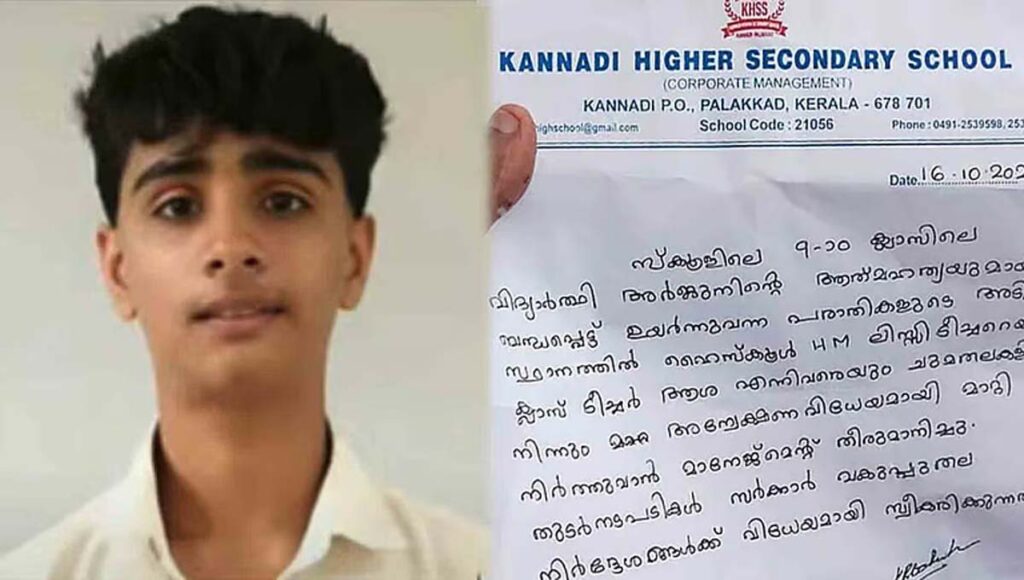 KHSS
KANNADI HIGHER SECONDARY SCHOOL
(CORPORATE MANAGEMENT)
KANNADI P.O., PALAKKAD, KERALA - 678 701
highschool@gmail.com School Code : 21056 Phone : 0491-2539598, 253
Date. 16-10-202
സ്കൂളിലെ 9-ാo ക്ലാസിലെ
വിദ്യാർത്ഥി അർജുനിന്റെ ആത്മഹത്യയുമായ
ബന്ധപ്പെട്ട് ഉയർന്നുവന്ന പരാതികളുടെ അടി
സ്ഥാനത്തിൽ ഹൈസ്കൂൾ HM ലിസ്സി ടീച്ചറെയ
ക്ലാസ് ടീച്ചർ ആശ എന്നിവരെയും ചുമതലകള
നിന്നും അന്വേക്ഷണ വിധേയമായി മാറ്റി
നിർത്തുവാൻ മാനേജ്മെന്റ് തീരുമാനിച്ചു.
തുടർനടപടികൾ സർക്കാർ വകുപ്പുതല
നിർദ്ദേശങ്ങൾക്ക് വിധേയമായി സ്വീകരിക്കുന്നത